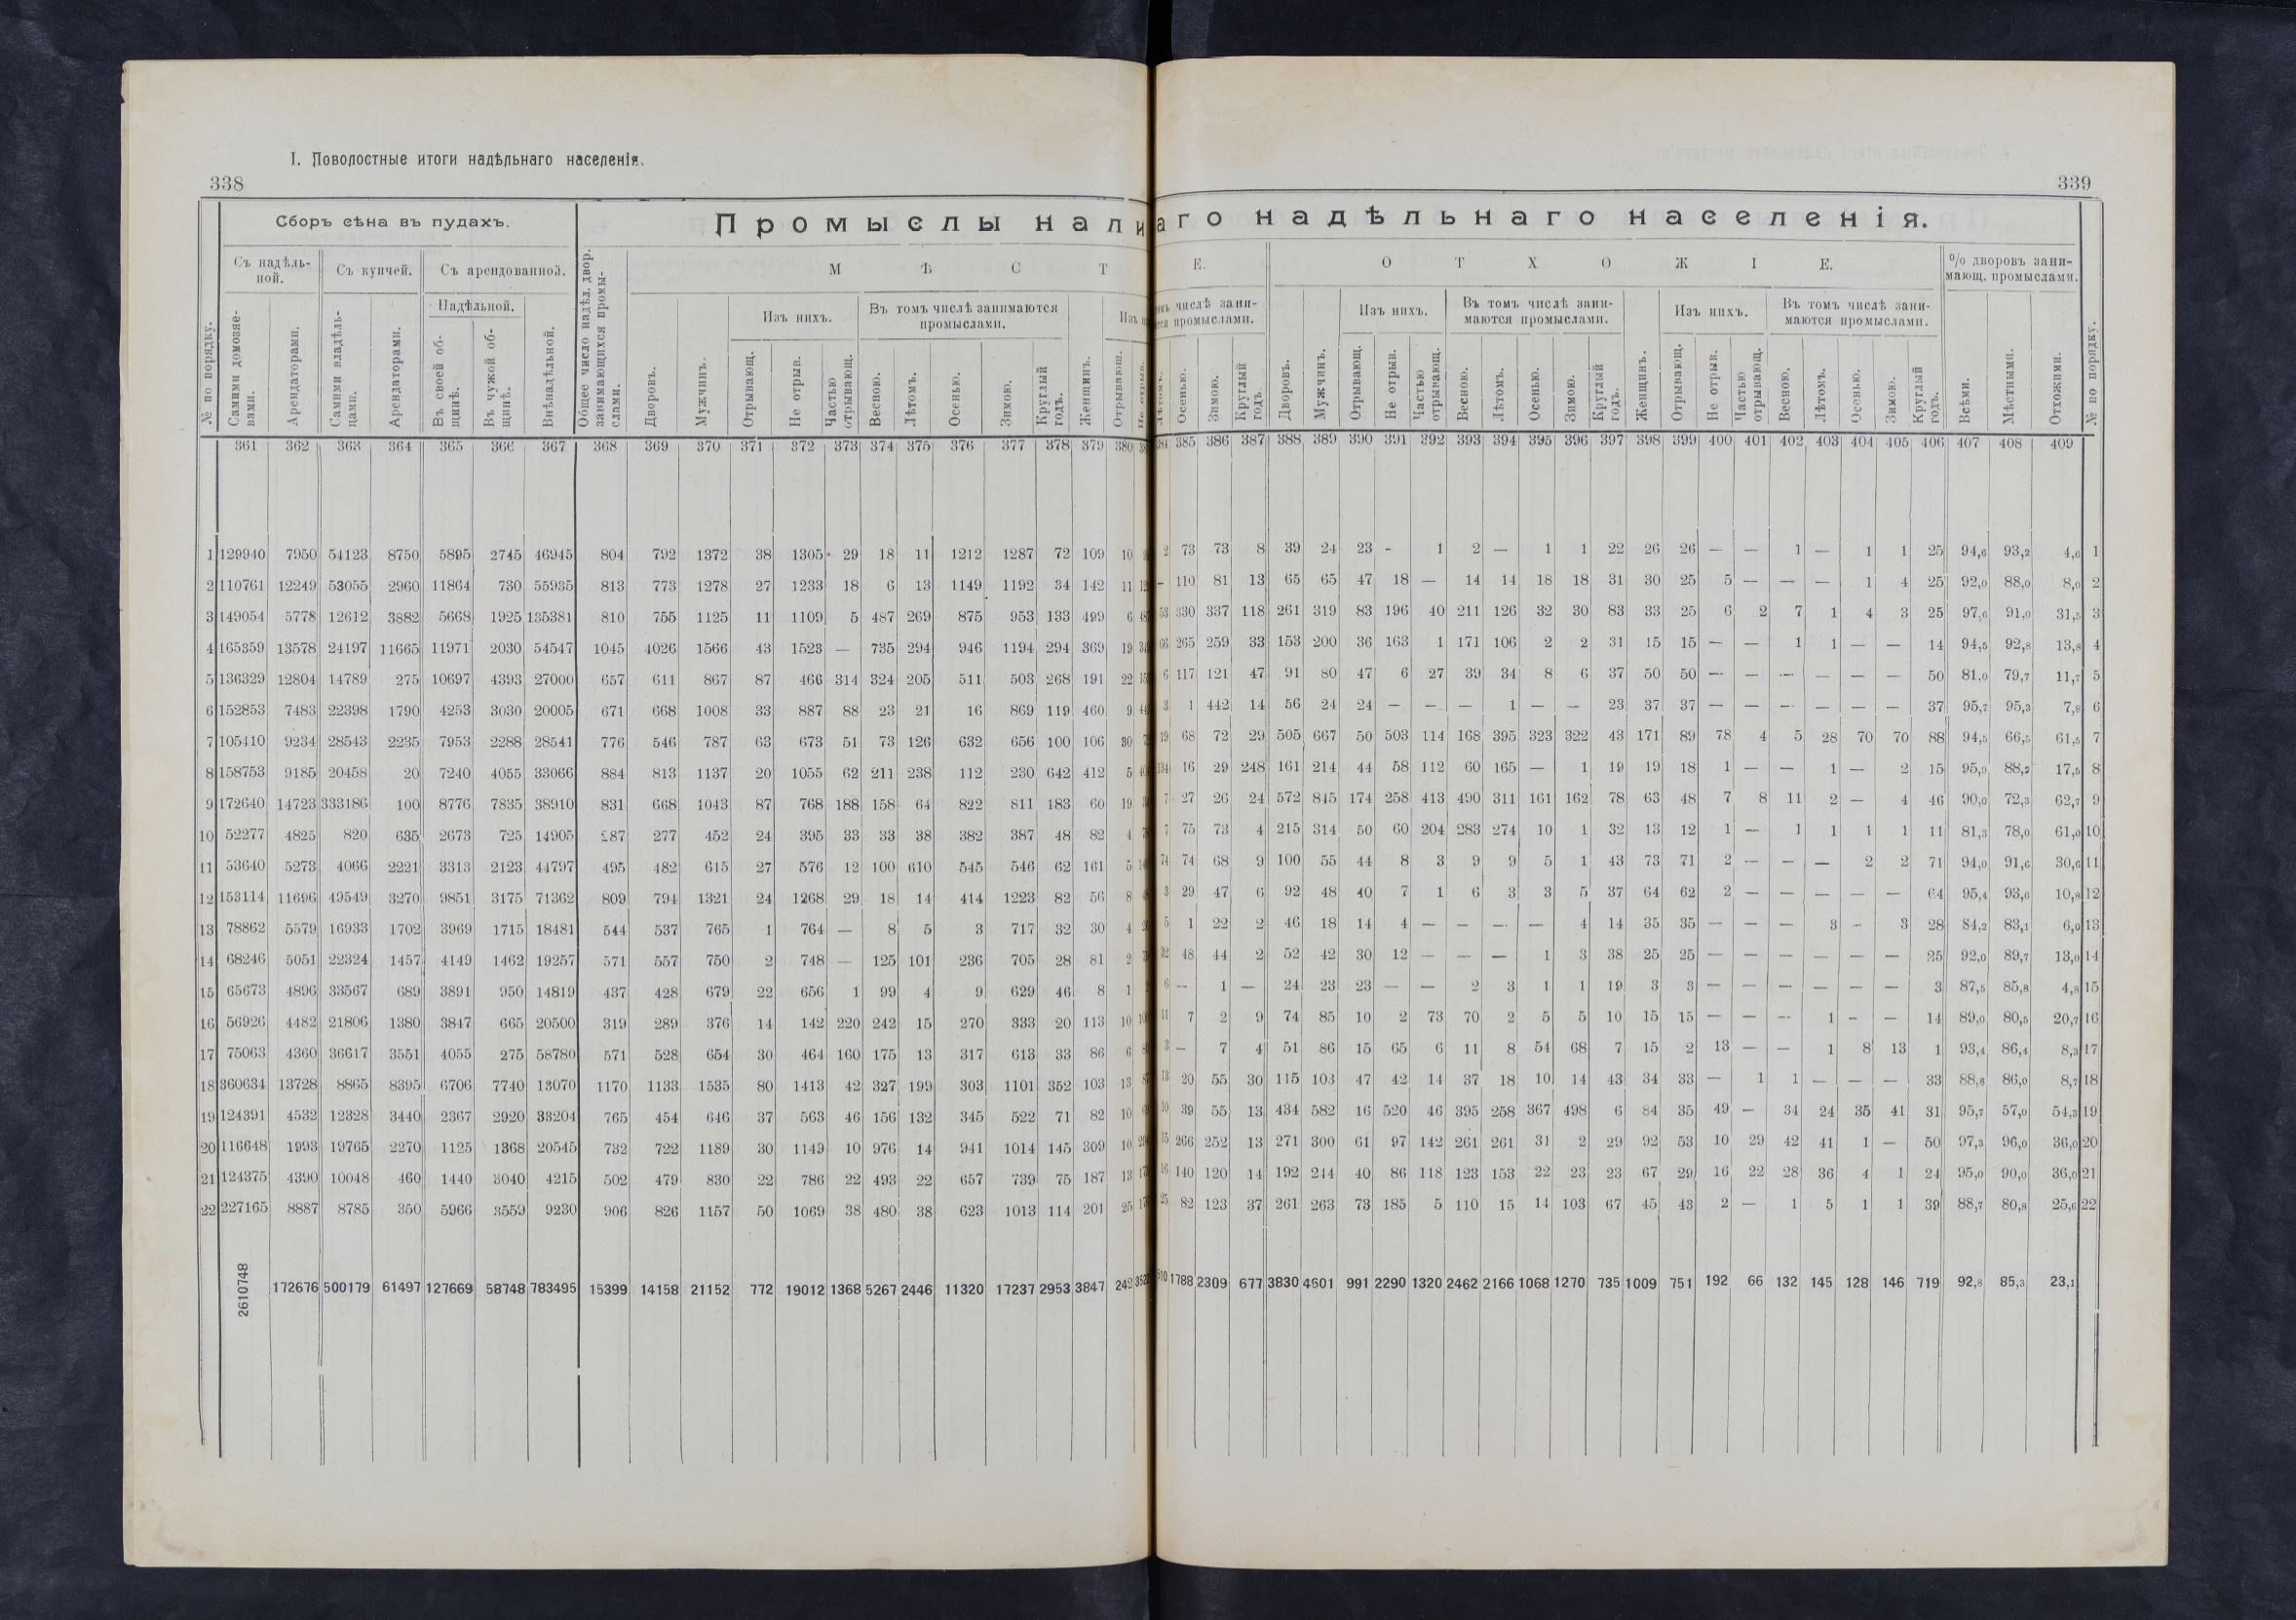 I. Поволостные итоги надѣльнаго населенія.
338
339
Сборъ сѣна въ пудахъ.
Промыслы нали
аго надѣльнаго населенія.
Съ надѣльной. Съ купчей. Съ арендованной. Надѣльной.
МѢСТ
Е.
ОТХОЖІЕ.
% дворовъ занимающ. промыслами.
Изъ нихъ. Въ томъ числѣ занимаются промыслами.
Изъ нихъ. Въ томъ числѣ занимаются промыслами. Изъ нихъ. Въ томъ числѣ занимаются промыслами.
№ по порядку. Самими домозяевами. Арендаторами. Самими владѣльцами. Арендаторами. Въ своей общинѣ. Въ чужой общинѣ. Внѣнадѣльной. Общее число надѣл. двор. занимающихся промыслами. Дворовъ. Мужчинъ. Отрывающ. Не отрыв. Частью отрывающ. Весною. Лѣтомъ. Осенью. Зимою. Круглый годъ. Женщинъ. Отрывающ.
Осенью. Зимою. Круглый годъ. Дворовъ. Мужчинъ. Отрывающ. Не отрыв. Частью отрывающ. Весною. Лѣтомъ. Осенью. Зимою. Круглый годъ. Женщинъ. Отрывающ. Не отрыв. Частью отрывающ. Весною. Лѣтомъ. Осенью. Зимою. Круглый годъ. Всѣми. Мѣстными. Отхожими. № по порядку.
361 362 363 364 365 366 367 368 369 370 371 372 373 374 375 376 377 378 379 380
384 385 386 387 388 389 390 391 392 393 394 395 396 397 398 399 400 401 402 403 404 405 406 407 408 409
1 129940 7950 54123 8750 5895 2745 46945 804 792 1372 38 1305 29 18 11 1212 1287 72 109 10
2 73 73 8 39 24 23 - 1 2 — 1 1 22 26 26 — — 1 — 1 1 25 94,6 93,2 4,6 1
2 110761 12249 53055 2960 11864 730 55935 813 773 1278 27 1233 18 6 13 1149 1192 34 142 11
— 110 81 13 65 65 47 18 — 14 14 18 18 31 30 25 5 — — — 1 4 25 92,0 88,0 8,0 2
3 149054 5778 12612 3882 5668 1925 135381 810 755 1125 11 1109 5 487 269 875 953 133 499 6
53 330 337 118 261 319 83 196 40 211 126 32 30 83 33 25 6 2 7 1 4 3 25 97,6 91,0 31,5 3
4 165359 13578 24197 11665 11971 2030 54547 1045 4026 1566 43 1523 — 735 294 946 1194 294 369 19
66 265 259 33 153 200 36 163 1 171 106 2 2 31 15 15 — — 1 1 — — 14 94,5 92,8 13,8 4
5 136329 12804 14789 275 10697 4393 27000 657 611 867 87 466 314 324 205 511 503 268 191 22
6 117 121 47 91 80 47 6 27 39 34 8 6 37 50 50 — — — — — — 50 81,0 79,7 11,7 5
6 152853 7483 22398 1790 4253 3030 20005 671 668 1008 33 887 88 23 21 16 869 119 460 9
3 1 442 14 56 24 24 — — — 1 — — 23 37 37 — — — — — — 37 95,7 95,3 7,8 6
7 105410 9234 28543 2235 7953 2288 28541 776 546 787 63 673 51 73 126 632 656 100 106 30
19 68 72 29 505 667 50 503 114 168 395 323 322 43 171 89 78 4 5 28 70 70 88 94,5 66,5 61,5 7
8 158753 9185 20458 20 7240 4055 33066 884 813 1137 20 1055 62 211 238 112 230 642 412 5
134 16 29 248 161 214 44 58 112 60 165 — 1 19 19 18 1 — — 1 — 2 15 95,9 88,2 17,5 8
9 172640 14723 333186 100 8776 7835 38910 831 668 1043 87 768 188 158 64 822 811 183 60 19
7 27 26 24 572 845 174 258 413 490 311 161 162 78 63 48 7 8 11 2 — 4 46 90,0 72,3 62,7 9
10 52277 4825 820 635 2673 725 14905 287 277 452 24 395 33 33 38 382 387 48 82 4
7 75 73 4 215 314 50 60 204 283 274 10 1 32 13 12 1 — 1 1 1 1 11 81,3 78,0 61,0 10
11 53640 5273 4066 2221 3313 2123 44797 495 482 615 27 576 12 100 610 545 546 62 161 5
74 74 68 9 100 55 44 8 3 9 9 5 1 43 73 71 2 — — — 2 2 71 94,0 91,6 30,6 11
12 153114 11696 49549 3270 9851 3175 71362 809 794 1321 24 1268 29 18 14 414 1223 82 56 8
3 29 47 6 92 48 40 7 1 6 3 3 5 37 64 62 2 — — — — — 64 95,4 93,6 10,8 12
13 78862 5579 16933 1702 3969 1715 18481 544 537 765 1 764 — 8 5 3 717 32 30 4
5 1 22 2 46 18 14 4 — — — — 4 14 35 35 — — — 3 - 3 28 84,2 83,1 6,0 13
14 68246 5051 22324 1457 4149 1462 19257 571 557 750 2 748 — 125 101 236 705 28 81 2
32 48 44 2 52 42 30 12 — — — 1 3 38 25 25 — — — — — — 25 92,0 89,7 13,0 14
15 65673 4896 33567 689 3891 950 14819 437 428 679 22 656 1 99 4 9 629 46 8 1
6 — 1 — 24 23 23 — — 2 3 1 1 19 3 3 — — — — — — 3 87,5 85,8 4,8 15
16 56926 4482 21806 1380 3847 665 20500 319 289 376 14 142 220 242 15 270 333 20 113 10
11 7 2 9 74 85 10 2 73 70 2 5 5 10 15 15 — — — 1 - — 14 89,0 80,5 20,7 16
17 75063 4360 36617 3551 4055 275 58780 571 528 654 30 464 160 175 13 317 613 33 86 6
3 — 7 4 51 86 15 65 6 11 8 54 68 7 15 2 13 — — 1 8 13 1 93,4 86,4 8,3 17
18 360634 13728 8865 8395 6706 7740 13070 1170 1133 1535 80 1413 42 327 199 303 1101 352 103 13
13 20 55 30 115 103 47 42 14 37 18 10 14 43 34 33 — 1 1 — — — 33 88,8 86,0 8,7 18
19 124391 4532 12328 3440 2367 2920 33204 765 454 646 37 563 46 156 132 345 522 71 82 10
10 39 55 13 434 582 16 520 46 395 258 367 498 6 84 35 49 — 34 24 35 41 31 95,7 57,0 54,3 19
20 116648 1993 19765 2270 1125 1368 20545 732 722 1189 30 1149 10 976 14 941 1014 145 309 10
15 266 252 13 271 300 61 97 142 261 261 31 2 29 92 53 10 29 42 41 1 — 50 97,3 96,0 36,0 20
21 124375 4390 10048 460 1440 3040 4215 502 479 830 22 786 22 493 22 657 739 75 187 13
16 140 120 14 192 244 40 86 118 123 153 22 23 23 67 29 16 22 28 36 4 1 24 95,0 90,0 36,0 21
22 227165 8887 8785 350 5966 3559 9230 906 826 1157 50 1069 38 480 38 623 1013 114 201 25
25 82 123 37 261 263 73 185 5 110 15 14 103 67 45 43 2 — 1 5 1 1 39 88,7 80,8 25,6 22
2610748 172676 500179 61497 127669 58748 783495 15399 14158 21152 772 19012 1368 5267 2446 11320 17237 2953 3847 242
510 1788 2309 677 3830 4601 991 2290 1320 2462 2166 1068 1270 735 1009 751 192 66 132 145 128 146 719 92,8 85,3 23,1